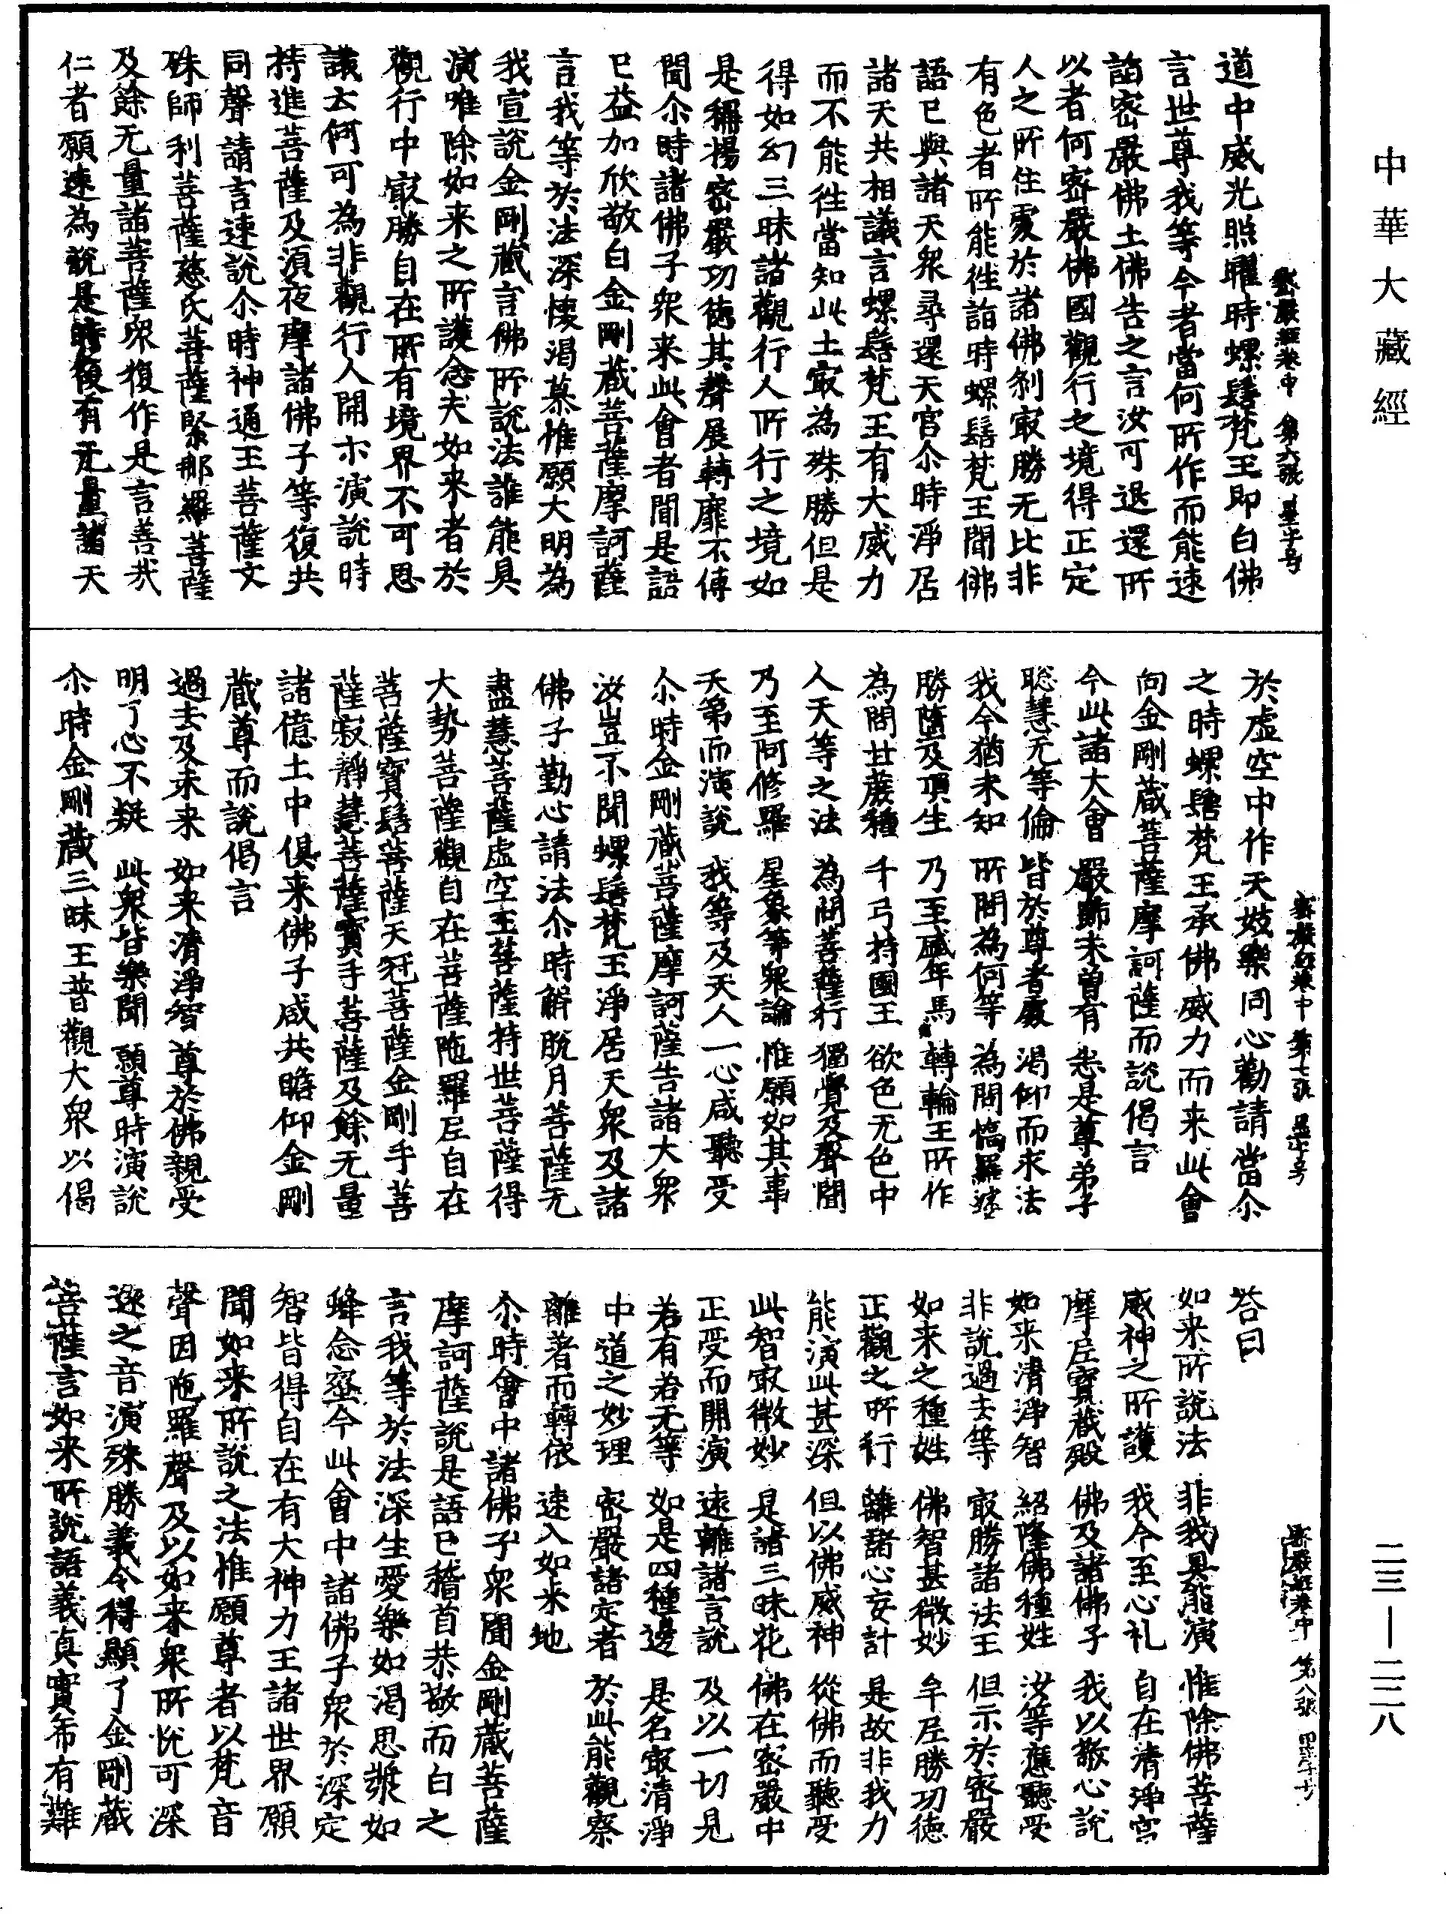 中華大藏經
密嚴經卷中 第六張 暑字号
道中威光照曜時螺髻梵王即白佛
言世尊我等今者當何所作而能速
詣密嚴佛土佛告之言汝可退還所
以者何密嚴佛國觀行之境得正定
人之所住處於諸佛刹㝡勝无比非
有色者所能往詣時螺髻梵王聞佛
語已與諸天衆尋還天宮尒時淨居
諸天共相議言螺髻梵王有大威力
而不能往當知此土㝡為殊勝但是
得如幻三昧諸觀行人所行之境如
是稱揚密嚴功徳其聲展轉靡不傳
聞尒時諸佛子衆来此會者聞是語
已益加欣敬白金剛藏菩薩摩訶薩
言我等於法深懷渴慕惟願大明為
我宣說金剛藏言佛所說法誰能具
演唯除如来之所護念夫如来者於
觀行中㝡勝自在所有境界不可思
議云何可為非觀行人開示演說時
持進菩薩及湏夜摩諸佛子等復共
同聲請言速說尒時神通王菩薩文
殊師利菩薩慈氏菩薩緊那羅菩薩
及餘无量諸菩薩衆復作是言善哉
仁者願速為說是時復有无量諸天
密嚴經卷中 第七張
於虛空中作天妓樂同心勸請當尒
之時螺髻梵王承佛威力而来此會
向金剛藏菩薩摩訶薩而說偈言
今此諸大會 嚴飾未曾有 悉是尊弟子
聡慧无等倫 皆於尊者處 渴仰而求法
我今猶未知 所問為何等 為問憍羅婆
勝墮及頂生 乃至威年馬 轉輪王所作
為問甘蔗種 千弓持國王 欲色无色中
人天等之法 為問菩薩行 獨覺及聲聞
乃至阿修羅 星象等衆論 惟願如其事
次第而演說 我等及天人 一心咸聽受
尒時金剛藏菩薩摩訶薩告諸大衆
汝豈不聞螺髻梵王淨居天衆及諸
佛子勤心請法尒時解脫月菩薩无
盡慧菩薩虛空王菩薩持世菩薩得
大勢菩薩觀自在菩薩陁羅𡰱自在
菩薩寳髻菩薩天冠菩薩金剛手菩
薩寂靜慧菩薩寳手菩薩及餘无量
諸億土中俱来佛子咸共瞻仰金剛
藏尊而說偈言
過去及未来 如来清淨智 尊於佛親受
明了心不疑 此衆皆樂聞 願尊時演說
尒時金剛藏三昧王普觀大衆以偈
密嚴經卷中 第八張
荅曰
如来所說法 非我具能演 惟除佛菩薩
威神之所護 我今至心礼 自在清淨宮
摩𡰱寳藏殿 佛及諸佛子 我以敬心說
如来清淨智 紹隆佛種姓 汝等應聽受
非說過去等 㝡勝諸法王 但示於密嚴
如来之種姓 佛智甚微妙 牟𡰱勝功徳
正觀之所行 離諸心妄計 是故非我力
能演此甚深 但以佛威神 從佛而聽受
此智㝡微妙 是諸三昧花 佛在密嚴中
正受而開演 遠離諸言說 及以一切見
若有若无等 如是四種邊 是名㝡清淨
中道之妙理 密嚴諸定者 於此能觀察
離著而轉依 速入如来地
尒時會中諸佛子衆聞金剛藏菩薩
摩訶薩說是語已稽首恭敬而白之
言我等於法深生愛樂如渴思漿如
蜂念蜜今此會中諸佛子衆於深定
智皆得自在有大神力王諸世界願
聞如来所說之法惟願尊者以梵音
聲因陁羅聲及以如来衆所恱可深
遠之音演殊勝義令得顯了金剛藏
菩薩言如来所說語義真實希有難
二三—二二八